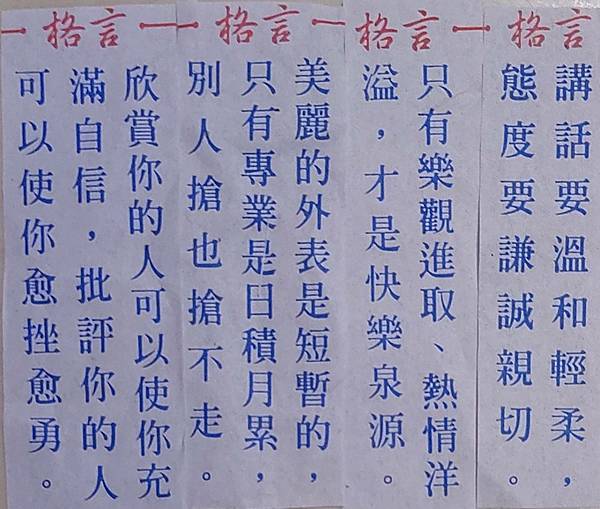 格言
講話要溫和輕柔，
態度要謙誠親切。
格言
只有樂觀進取、熱情洋
溢，才是快樂泉源。
格言
美麗的外表是短暫的，
只有專業是日積月累，
別人搶也搶不走。
格言
欣賞你的人可以使你充
滿自信，批評你的人
可以使你愈挫愈勇。